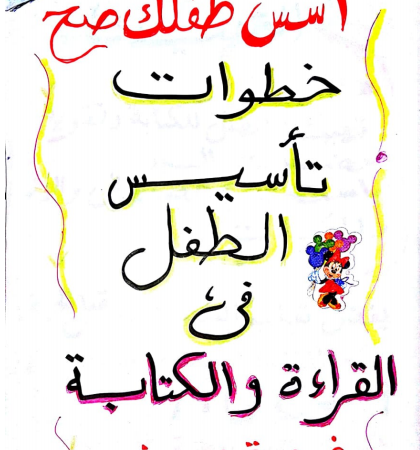 أسس طفلك صح
خطوات
تأسيس
الطفل
في
القراءة والكتابة